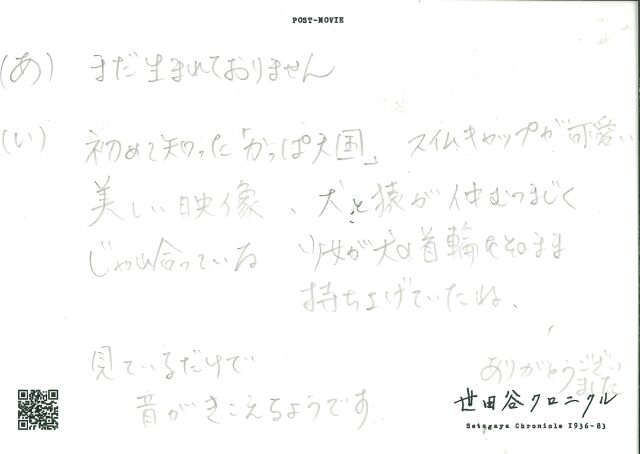 POST-MOVIE
(あ) まだ生まれておりません
(い) 初めて知った「かっぱ天国」 スイムキャップが可愛い
美しい映像、犬と猿が仲むつまじく
じゃれ合っている 少女が犬の首輪をそのまま
持ち上げていたね、
見ているだけで
音がきこえるようです
ありがとうござい
ました
世田谷クロニクル
Setagaya Chronicle 1936-83